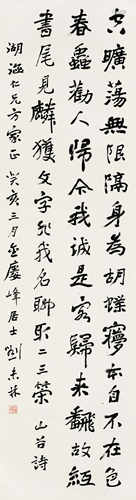 曠蕩無限隔身為胡蝶夢本自不在色
春蠶勸人歸今我誠是客歸來飜故紙
書尾見麟獲文字非我名聊取二三策 山谷詩
湖涵仁兄方家正 癸亥三月 峰居士劉未林